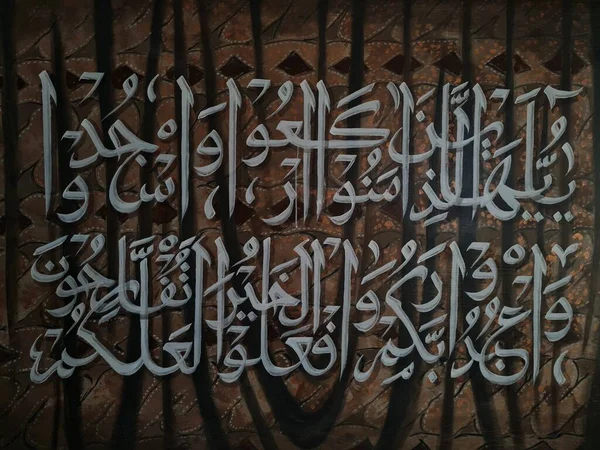 يٰٓاَيُّهَا الَّذِينَ اٰمَنُوا ارْكَعُوا وَاسْجُدُوا
وَاعْبُدُوا رَبَّكُمْ وَافْعَلُوا الْخَيْرَ لَعَلَّكُمْ تُفْلِحُونَ